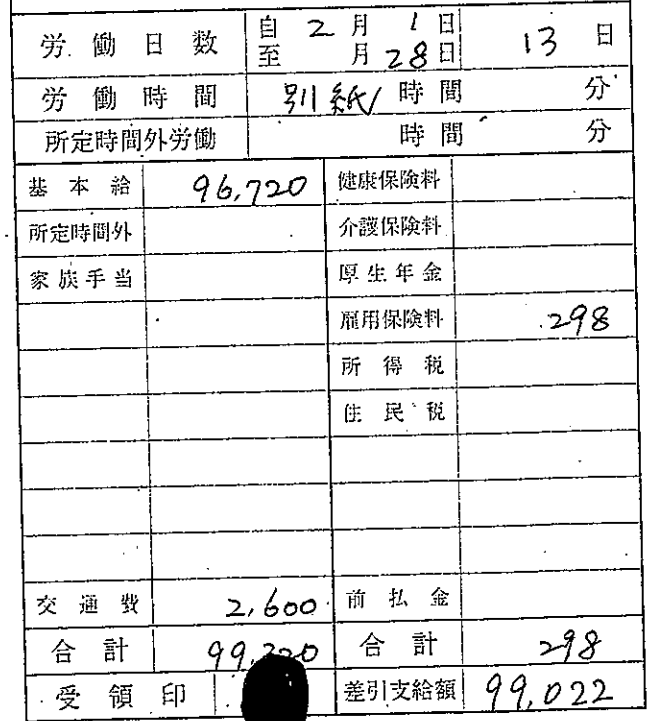 労働日数 自 2月 1日 13日
至 月 28日
労働時間 別紙 時間 分
所定時間外労働 時間 分
基本給 96,720 健康保険料
所定時間外 介護保険料
家族手当 厚生年金
雇用保険料 298
所得税
住民税
交通費 2,600 前払金
合計 99,320 合計 298
受領印 差引支給額 99,022